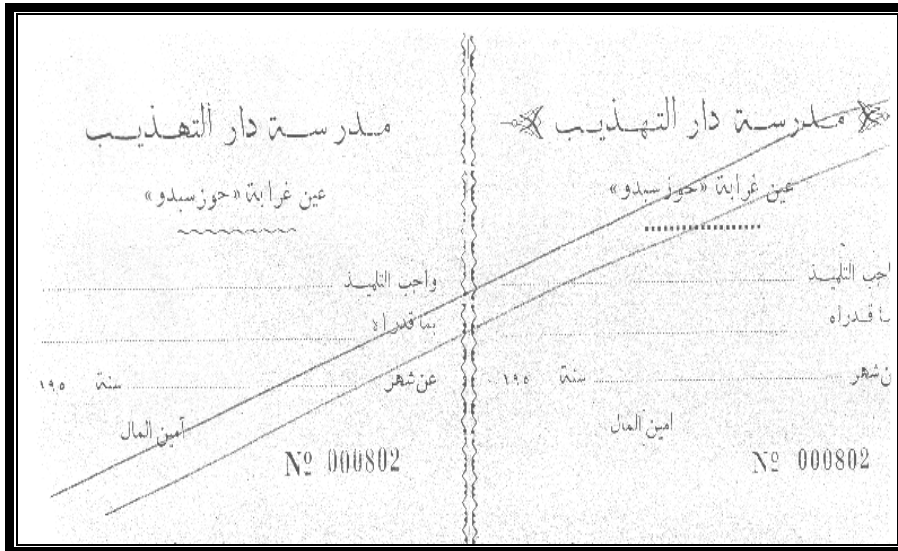 مدرسة دار التهذيب
عين غرابة «حوز سبدو»
اجب التلميذ
ا قدراه
ن شهر سنة ١٩٥
امين المال
Nº 000802
مدرسة دار التهذيب
عين غرابة «حوز سبدو»
واجب التلميذ
بما قدراه
عن شهر سنة ١٩٥
أمين المال
Nº 000802